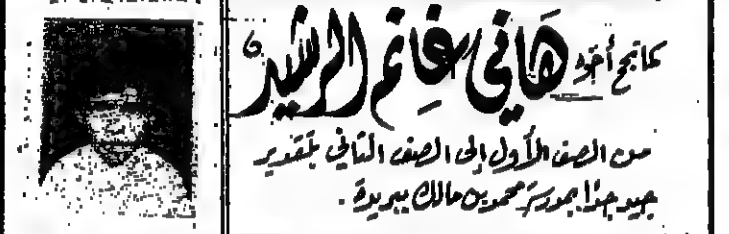 كما نجح أخوه هاني غانم الرشيد
من الصف الأول إلى الصف الثاني بتقدير
جيد جدًا بمدرسة محمد بن مالك ببريدة.